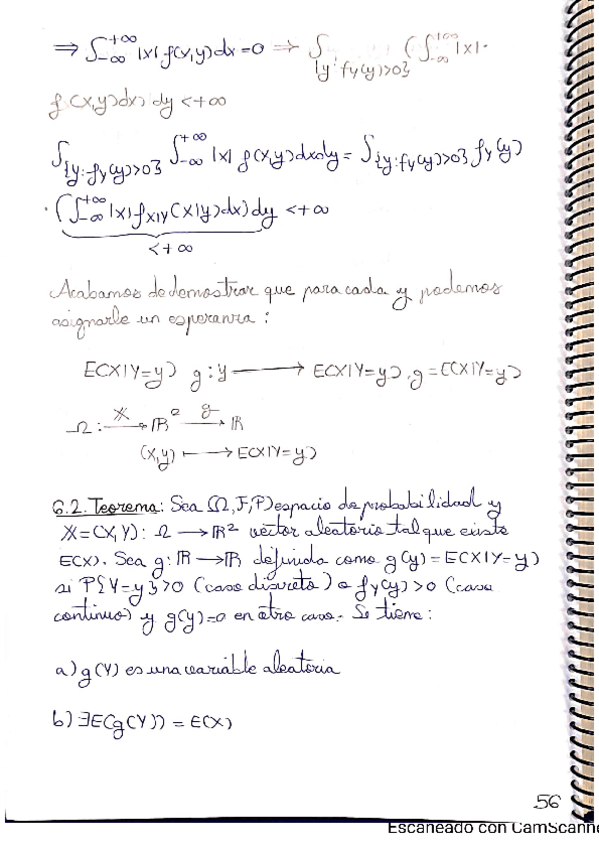 ⇒ ∫_{-∞}^{+∞} |x| f(x,y)dx = 0 ⇒ ∫_{{y: f_Y(y)>0}} (∫_{-∞}^{+∞} |x| ·
f(x,y)dx) dy < +∞
∫_{{y: f_Y(y)>0}} ∫_{-∞}^{+∞} |x| f(x,y)dxdy = ∫_{{y: f_Y(y)>0}} f_Y(y)
· (∫_{-∞}^{+∞} |x| f_{X|Y}(x|y)dx) dy < +∞
< +∞
Acabamos de demostrar que para cada y podemos
asignarle un esperanza :
E(X|Y=y) g : y ⟶ E(X|Y=y). g = E(X|Y=y)
Ω : ⟶^{𝕏} ℝ² ⟶^{g} ℝ
(x,y) ⟼ E(X|Y=y)
6.2. Teorema: Sea (Ω,F,P) espacio de probabilidad y
𝕏 = (X,Y): Ω ⟶ ℝ² vector aleatorio tal que existe
E(X). Sea g: ℝ ⟶ ℝ definida como g(y) = E(X|Y=y)
si P{Y=y}>0 (caso discreto) o f_Y(y)>0 (caso
continuo) y g(y)=0 en otro caso. Se tiene :
a) g(Y) es una variable aleatoria
b) ∃E(g(Y)) = E(X)
56
Escaneado con CamScanne